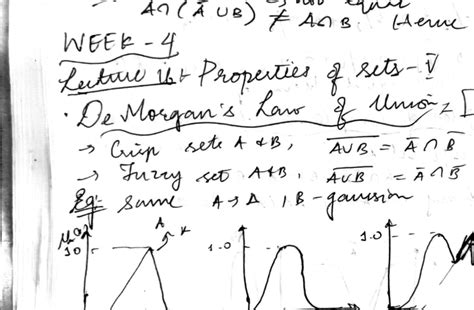 A∩(Ā∪B) ≠ A∩B. Hence
WEEK-4
Lecture 16: Properties of sets-V
· De Morgan's Law of Union =
→ Crisp sets A & B, \overline{A∪B} = Ā∩B̄
→ Fuzzy set A & B, \overline{A∪B} = Ā∩B̄
Eg: same A→Δ, B-gaussian
1.0 A 1.0 1.0